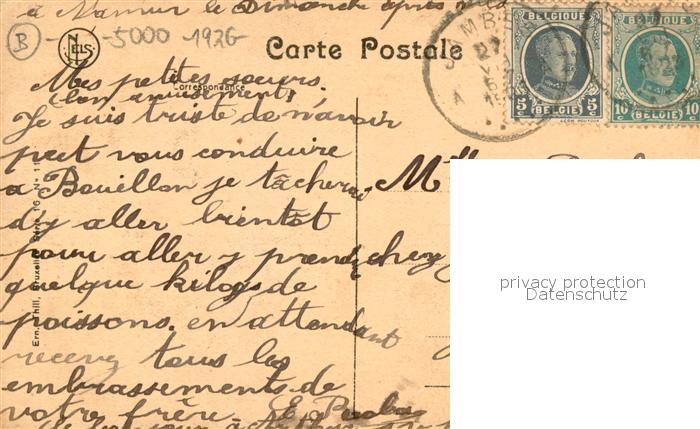 a Namur le Dimanche après
B - NELS - 5000 - 1926
Carte Postale
BELGIQUE
5 5
BELGIË
BELGIQUE
10 10
BELGIË
Correspondance
Mes petites soeurs.
(bon amusement)
Je suis triste de n'avoir
put vous conduire
a Bouillon je tâcherai
d'y aller bientôt
pour aller y prendre
quelque kilogs de
poissons. en attendant
recevez tous les
embrassements de
votre frère.
Mlle
chez
Ern. Thill, Bruxelles, Série 16, N° 1
privacy protection
Datenschutz